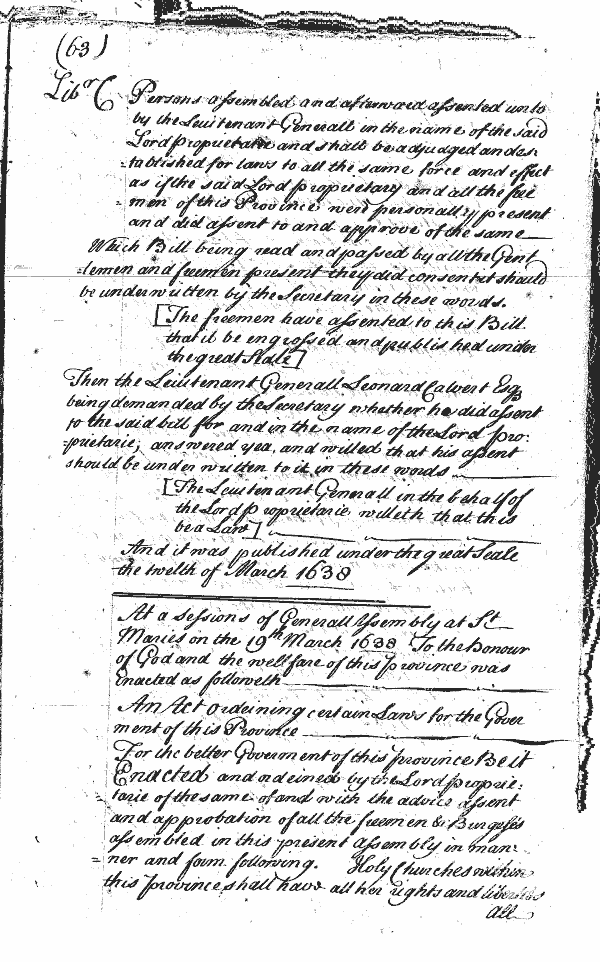 (63)
Libr C
Persons assembled and afterward assented unto
by the Leuitenant Generall in the name of the said
Lord Proprietarie and shall be adjudged and es:
:tablished for laws to all the same force and effect
as if the said Lord proprietary and all the free
:men of this Province were personally present
and did assent to and approve of the same
Which Bill being read and passed by all the Gent
:lemen and freemen present they did consent it should
be underwritten by the Secretary in these words.
[The freemen have assented to this Bill
that it be engrossed and published under
the great Seale]
Then the Leuitenant Generall Leonard Calvert Esq
being demanded by the Secretary whether he did assent
to the said bill for and in the name of the Lord pro:
:prietarie; answered yea, and willed that his assent
should be under written to it in these words
[The Leuitenant Generall in the behalf of
the Lord proprietarie willeth that this
be a Law]
And it was published under the great Seale
the twelth of March 1638
At a sessions of Generall Assembly at St
Maries on the 19th March 1638 To the honour
of God and the wellfare of this province was
Enacted as followeth
An Act ordeining certain Laws for the Gover
ment of this Province
For the better Goverment of this province Be it
Enacted and ordeined by the Lord proprie:
tarie of the same of and with the advice assent
and approbation of all the freemen & Burgesses
assembled in this present assembly in man:
=ner and form following. Holy Churches within
this province shall have all her rights and liberties
all